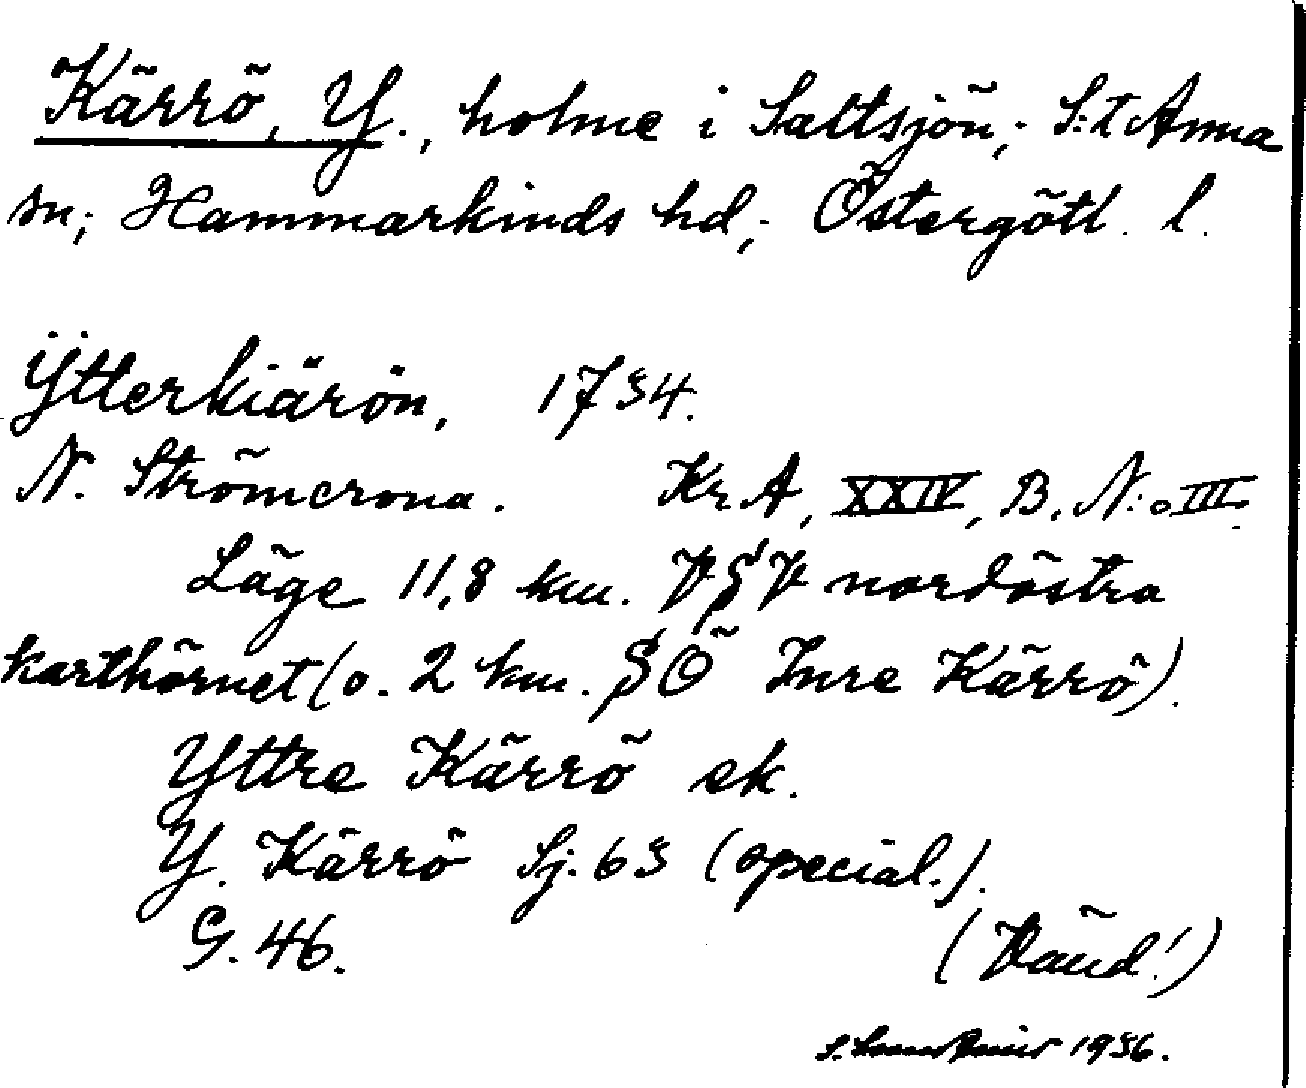 Kärrö, Y., holme i Saltsjön; S:t Anna
sn; Hammarkinds hd; Östergötl. l.
Ytterkiärön, 1734.
N. Strömcrona. Kr. A, XXIV, B. N:o III.
Läge 11,8 km. VSV nordöstra
karthörnet (o. 2 km. SÖ Inre Kärrö).
Yttre Kärrö ek.
Y. Kärrö Sj. 63 (special.).
G. 46.
(Vänd!)
1936.